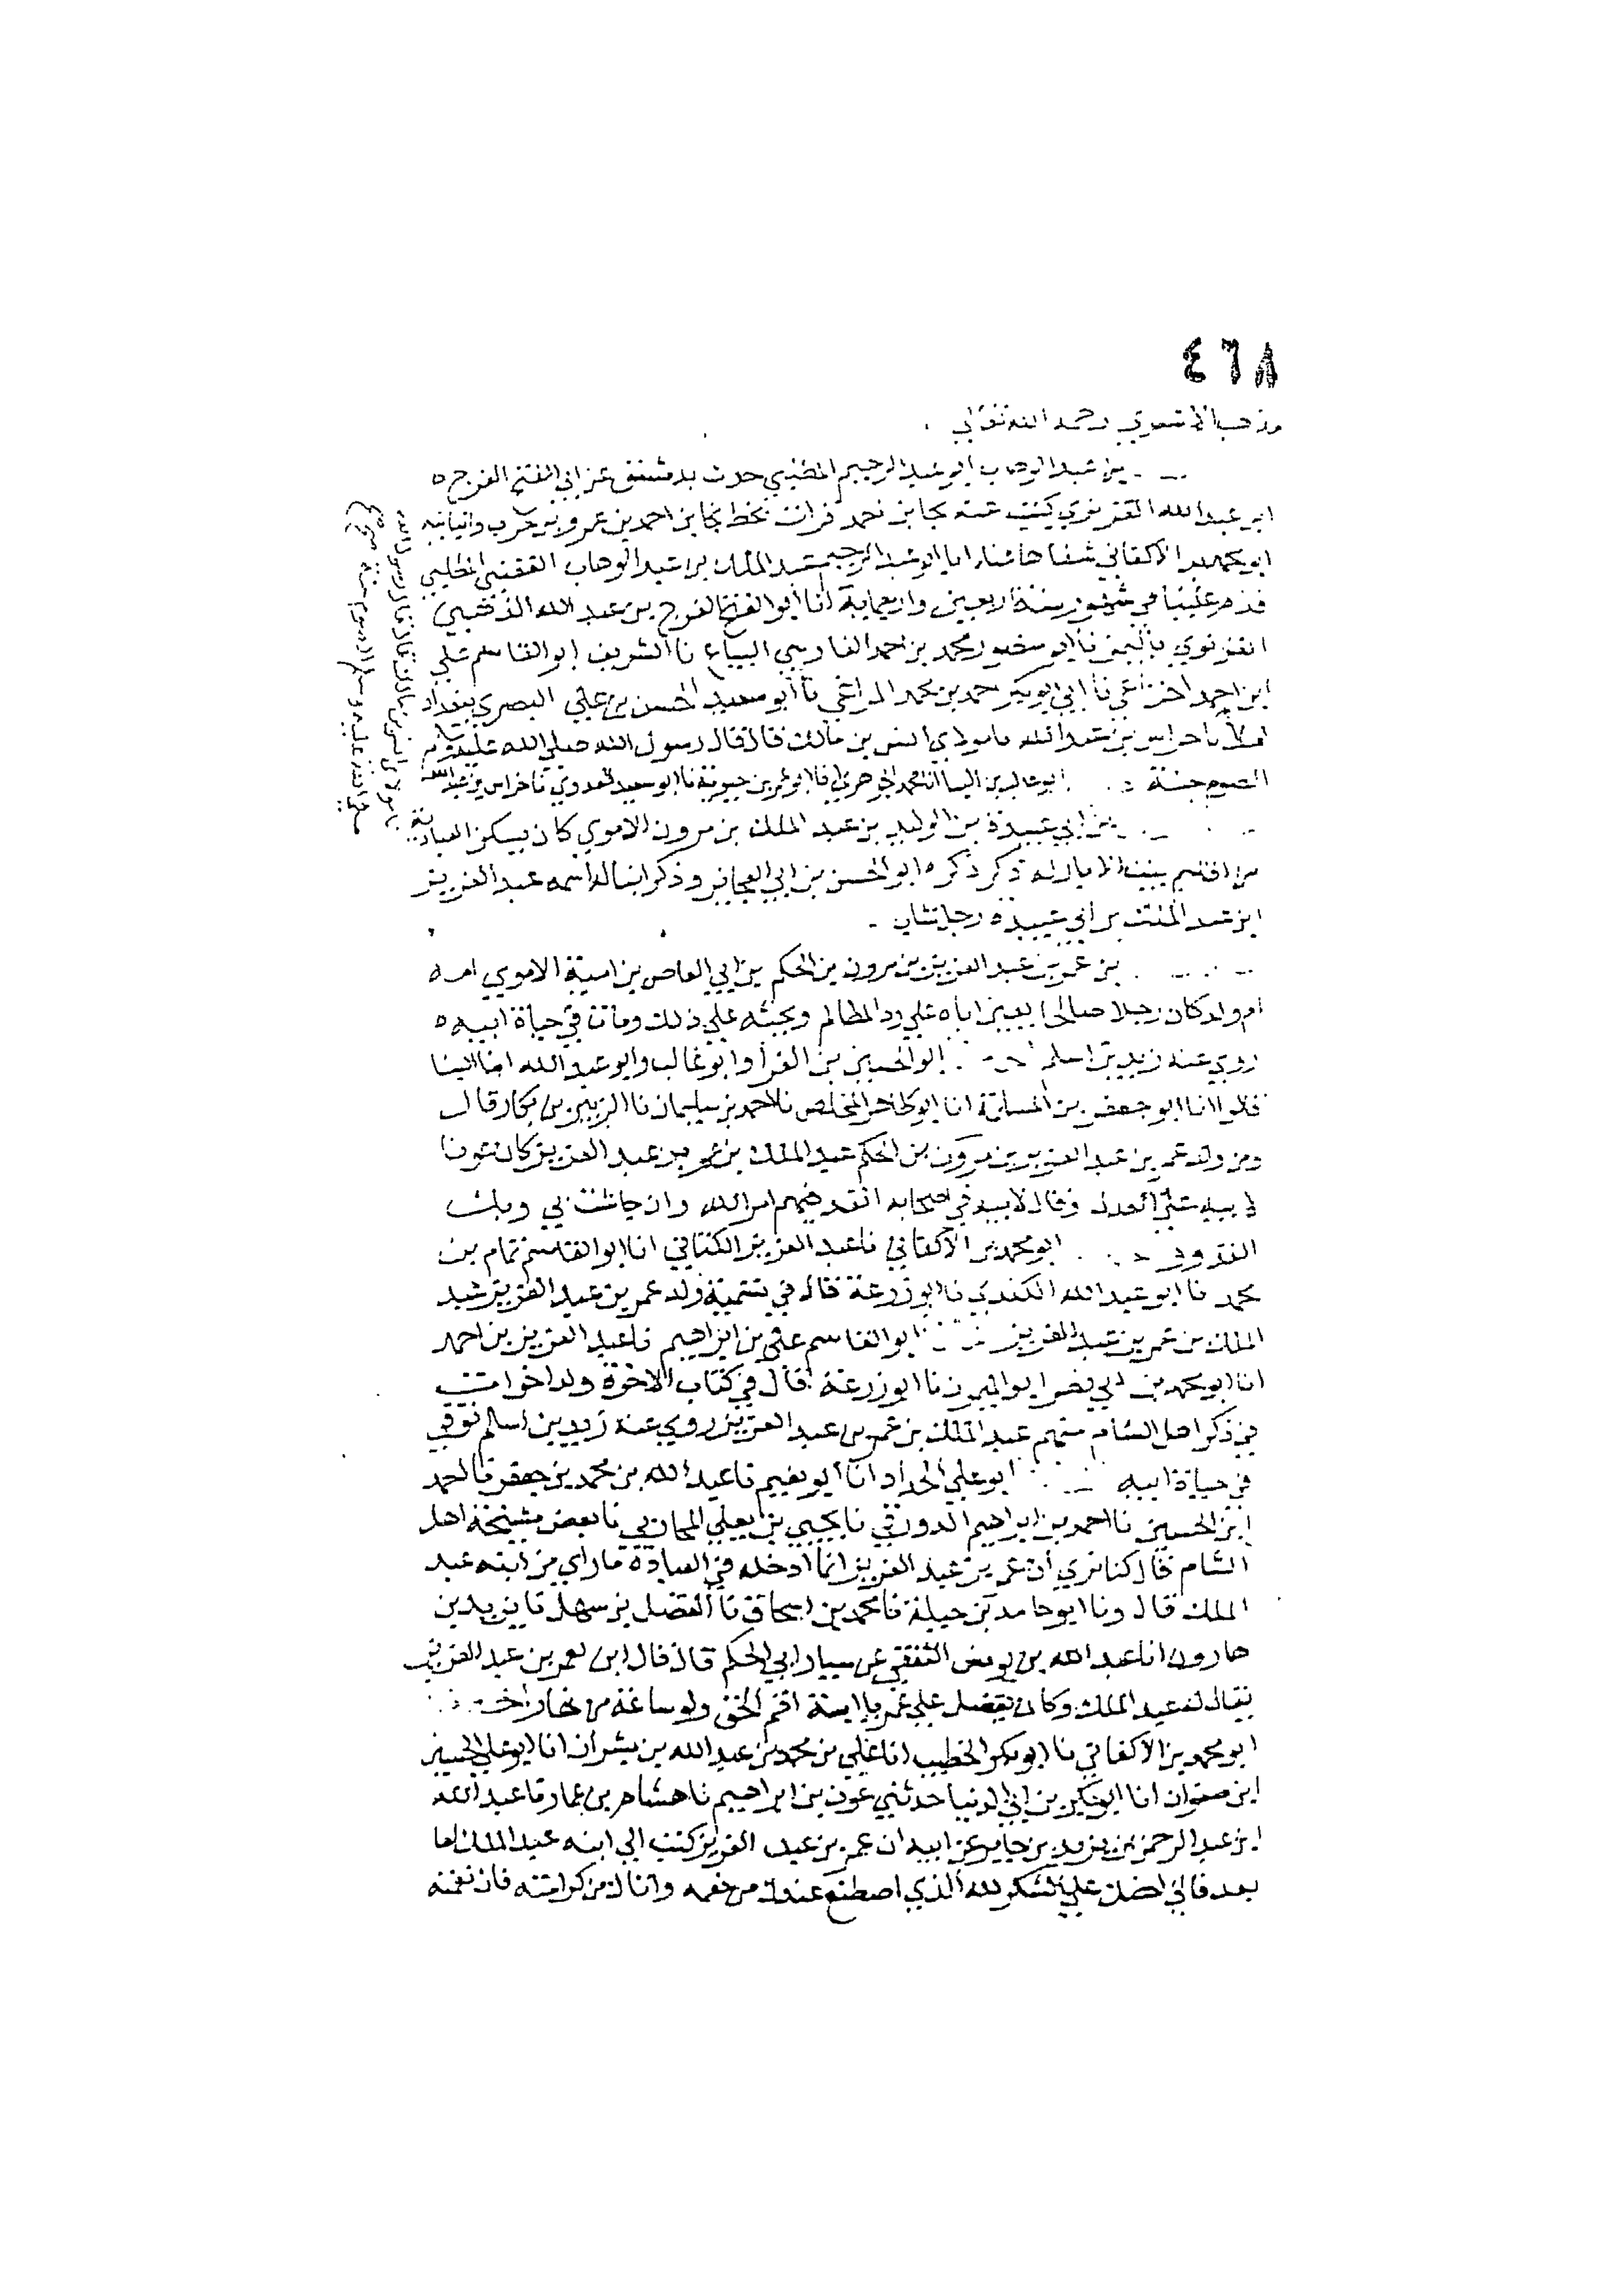 ٤٦٨
مذهب الاشعري رحمه الله تعالى
بن عبد الوهاب ابو عبد الرحيم حدث بدمشق عن ابي الفتح الفرج
ابن عبد الله كتب عنه نجا بن احمد قرات بخط نجا بن احمد بن عمرو بن حرب وانبانيه
ابو محمد بن الاكفاني شفاها انا ابو عبد الرحيم عبد الملك بن عبد الوهاب
قدم علينا في شهور سنة اربعين واربعماية انا ابو الفتح الفرج بن عبد الله
نا ابو منصور محمد بن احمد الفارسي البياع نا الشريف ابو القاسم علي
ابن احمد نا ابي ابو بكر احمد بن محمد المراغي نا ابو سعيد الحسن بن علي البصري ببغداد
نا خراش بن عبد الله نا مولاي انس بن مالك قال قال رسول الله صلي الله عليه وسلم
الصوم جنة ابو غالب بن البنا انا محمد الجوهري انا ابو عمر بن حيوية نا ابو سعيد العدوي نا خراش بن عبد الله
نا مولاي انس بن مالك قال قال رسول الله
صلي الله عليه وسلم الصوم جنة صح
بن ابي عبيدة بن الوليد بن عبد الملك بن مرون الاموي كان يسكن
من اقليم بيت الابار له ذكر ذكره ابو الحسن بن ابي العجايز وذكر ابنا له اسمه عبد العزيز
ابن عبد الملك بن ابي عبيدة رجل شاب
بن عمر بن عبد العزيز بن مرون بن الحكم بن ابي العاص بن امية الاموي امه
ام ولد كان رجلا صالحا يعين اباه علي رد المظالم ويحثه علي ذلك ومات في حياة ابيه
روي عنه زيد بن اسلم ابو الحسين بن الفرا وابو غالب وابو عبد الله ابنا البنا
قالوا انا ابو جعفر بن المسلمة انا ابو طاهر المخلص نا احمد بن سليمان نا الزبير بن بكار قال
ومن ولد عمر بن عبد العزيز بن مرون بن الحكم عبد الملك بن عمر بن عبد العزيز كان عونا
لابيه علي العدل وقال لابيه في اصحابه انفذ فيهم امر الله وان جاشت بي وبك
القدور ابو محمد بن الاكفاني نا عبد العزيز الكتاني انا ابو القاسم تمام بن
محمد نا ابو عبد الله الكندي نا ابو زرعة قال في تسمية ولد عمر بن عبد العزيز عبد
الملك بن عمر بن عبد العزيز ابو القاسم علي بن ابراهيم نا عبد العزيز بن احمد
انا ابو محمد بن ابي نصر ابو الميمون نا ابو زرعة قال في كتاب الاخوة
في ذكر اهل الشام منهم عبد الملك بن عمر بن عبد العزيز روي عنه زيد بن اسلم توفي
في حياة ابيه ابو علي الحداد انا ابو نعيم نا عبد الله بن محمد بن جعفر نا احمد
ابن الحسين نا احمد بن ابراهيم الدورقي نا يحيي بن يعلي المحاربي نا بعض مشيخة اهل
الشام قال كنا نري ان عمر بن عبد العزيز انما ادخله في العبادة ما راي من ابنه عبد
الملك قال ونا ابو حامد بن جبلة نا محمد بن اسحاق نا الفضل بن سهل نا يزيد بن
هارون انا عبد الله بن يونس الثقفي عن سيار ابي الحكم قال قال ابن لعمر بن عبد العزيز
يقال له عبد الملك وكان يفضل علي عمر يا ابة اقم الحق ولو ساعة من نهار
ابو محمد بن الاكفاني نا ابو بكر الخطيب انا علي بن محمد بن عبد الله بن بشران انا ابو علي الحسين
ابن صفوان انا ابو بكر بن ابي الدنيا حدثني عون بن ابراهيم نا هشام بن عمار نا عبد الله
ابن عبد الرحمن بن يزيد بن جابر عن ابيه ان عمر بن عبد العزيز كتب الي ابنه عبد الملك اما
بعد فاني احضك علي الشكر لله الذي اصطنع عندك من نعمه واتاك من كرامته فان نعمته